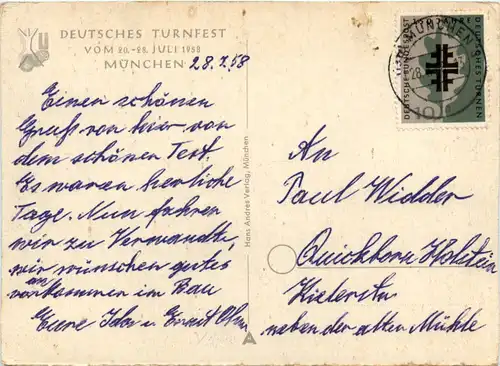 DEUTSCHES TURNFEST
VOM 20.-28. JULI 1958
MÜNCHEN 28.7.58
Einen schönen
Gruß von hier von
dem schönen Fest.
Es waren herrliche
Tage. Nun fahren
wir zu Verwandte,
wir wünschen gutes
vorkommen im Bau
Eure Ida u Ernst
Hans Andres Verlag, München
MÜNCHEN
DEUTSCHE BUNDESPOST
JAHRE
DEUTSCHES TURNEN
10
An
Paul Widder
Quickborn Holstein
Kielerstr
neben der alten Mühle
A